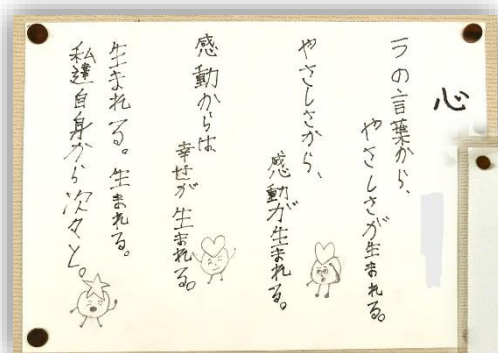 心
一つの言葉から、
やさしさが生まれる。
やさしさから、
感動が生まれる。
感動からは
幸せが生まれる。
生まれる。生まれる。
私達自身から次々と。